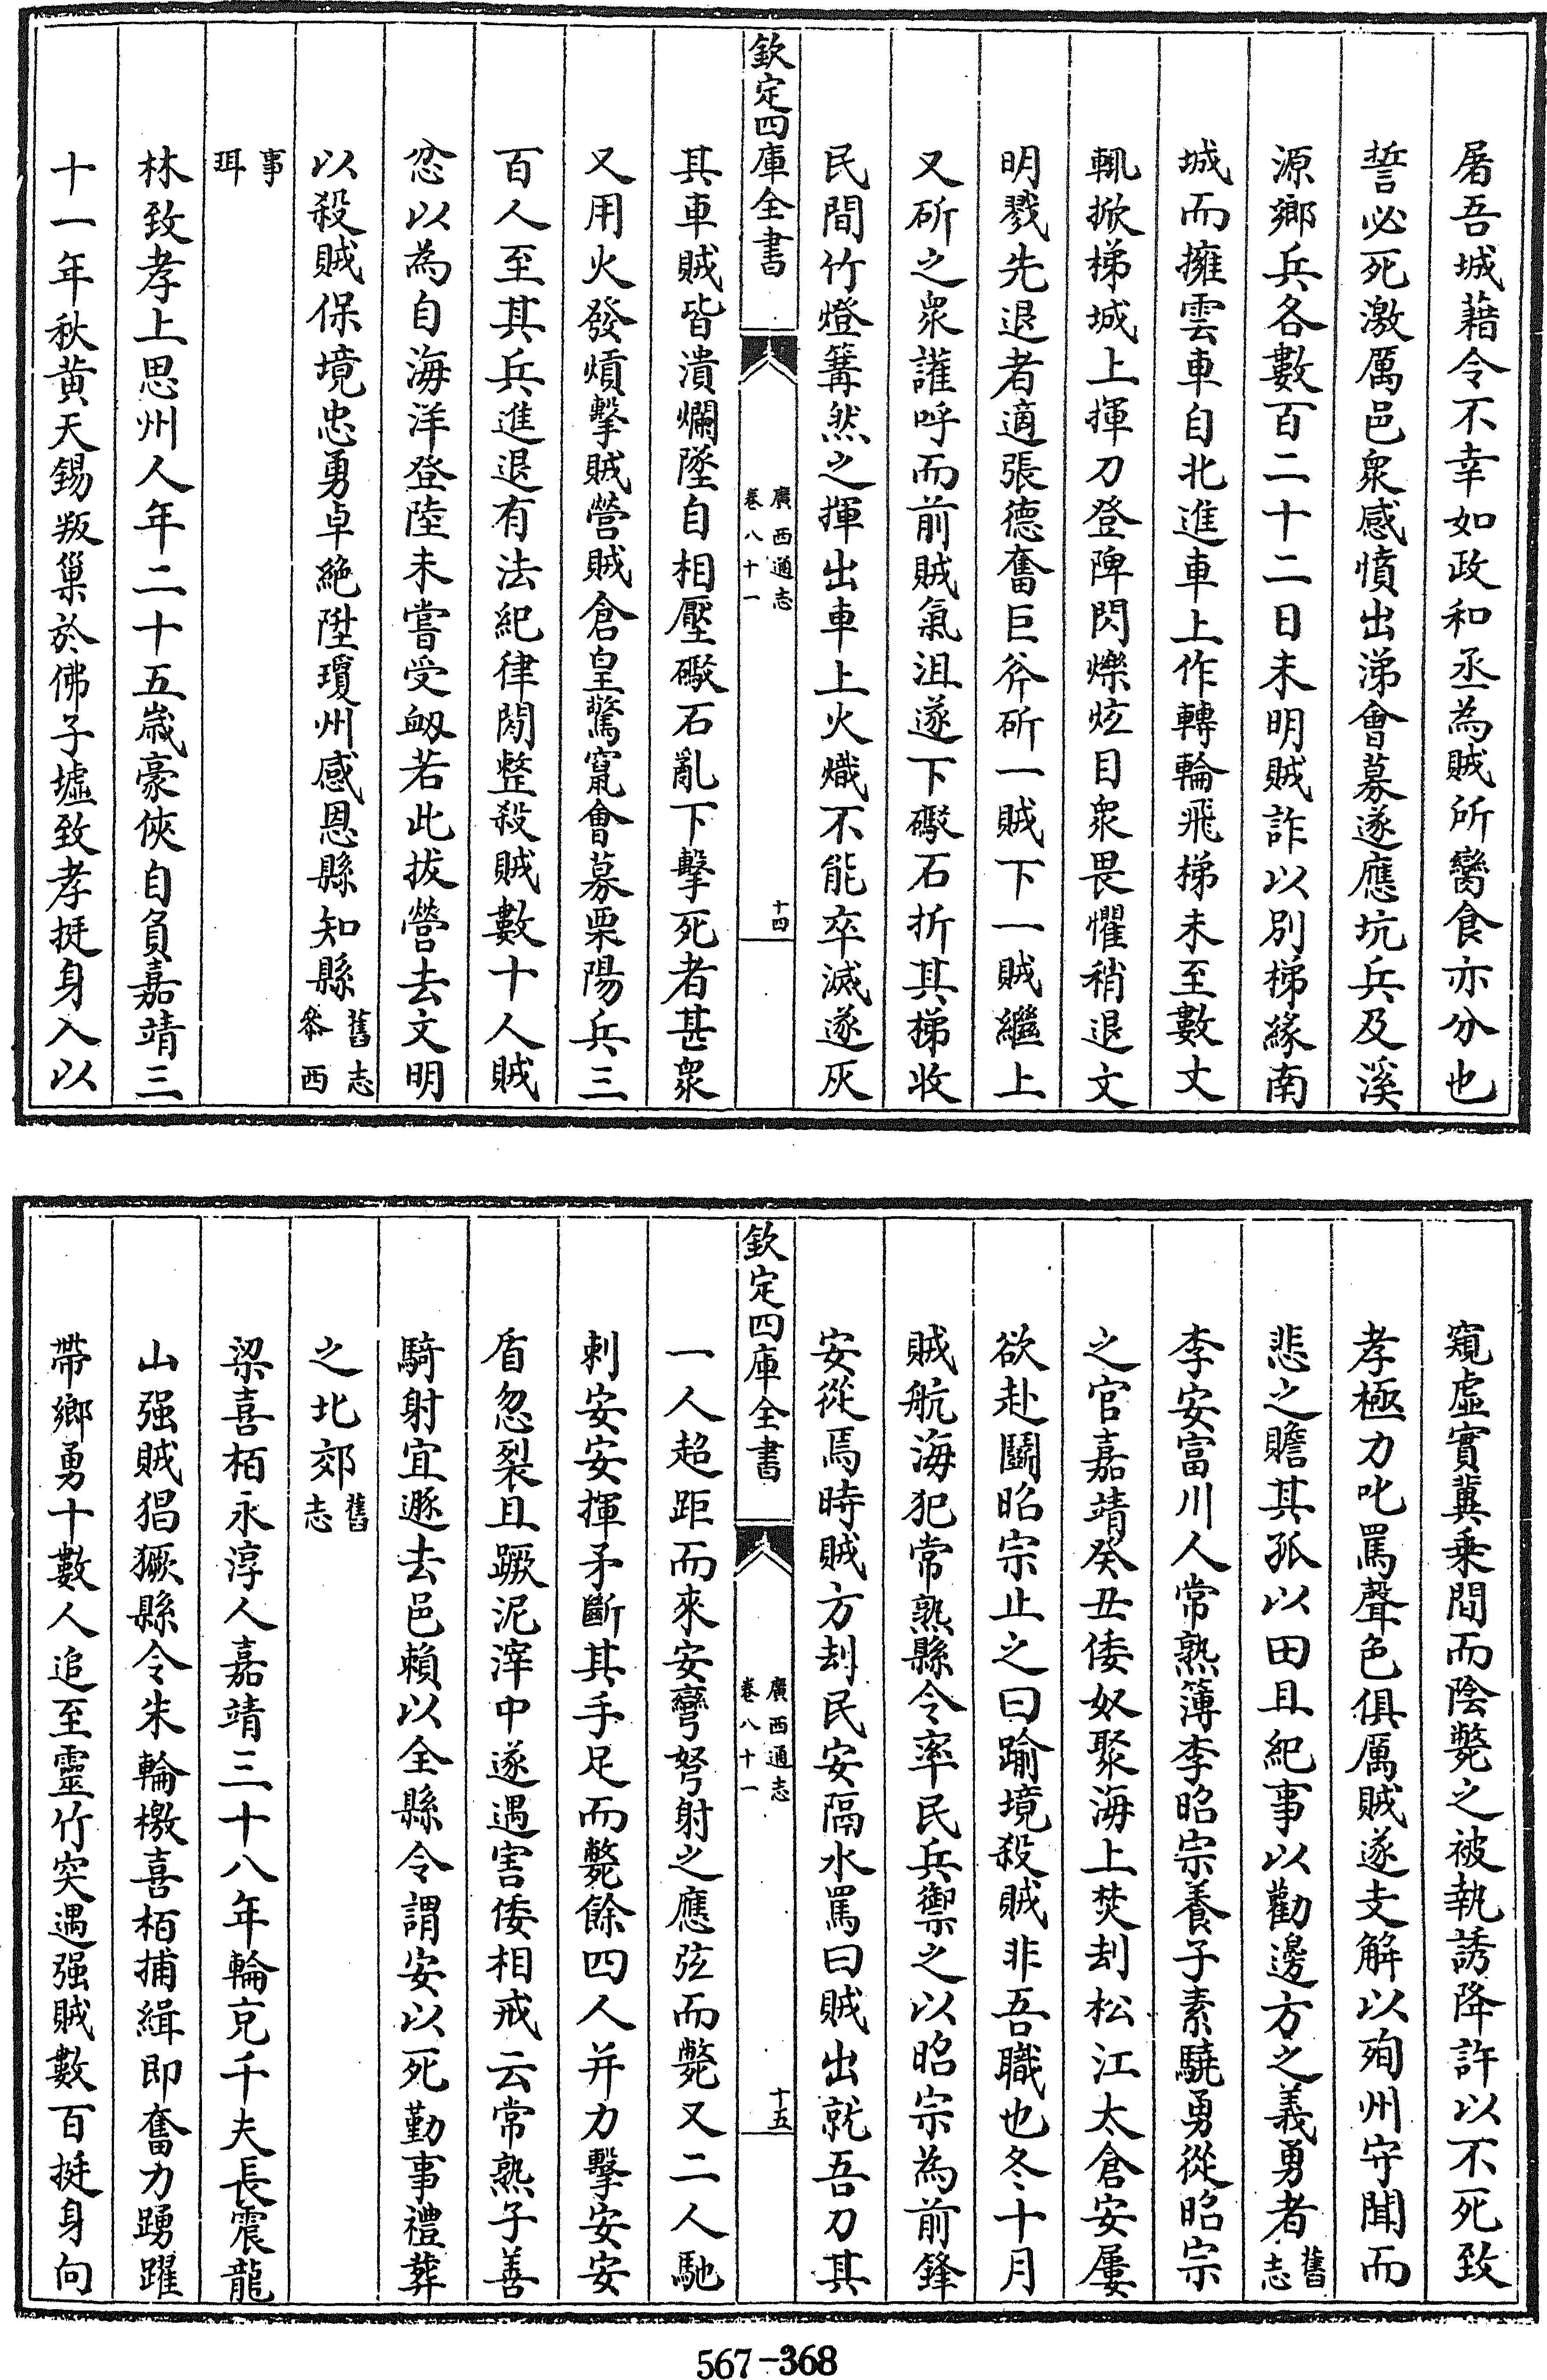 屠吾城藉令不幸如政和丞為賊所臠食亦分也
誓必死激厲邑衆感憤出涕會募遂應坑兵及溪
源鄉兵各數百二十二日未明賊詐以別梯緣南
城而擁雲車自北進車上作轉輪飛梯未至數丈
輒掀梯城上揮刀登陴閃爍炫目衆畏懼稍退文
明戮先退者適張德奮巨斧斫一賊下一賊繼上
又斫之衆讙呼而前賊氣沮遂下礮石折其梯收
民間竹燈篝然之揮出車上火熾不能卒滅遂灰
欽定四庫全書
廣西通志
卷八十一
十四
其車賊皆潰爛墜自相壓礮石亂下擊死者甚衆
又用火發熕擊賊營賊倉皇驚竄會募栗陽兵三
百人至其兵進退有法紀律閑整殺賊數十人賊
忿以為自海洋登陸未嘗受衂若此拔營去文明
以殺賊保境忠勇卓絶陞瓊州感恩縣知縣舊志叅西
事珥
林致孝上思州人年二十五歲豪俠自負嘉靖三
十一年秋黄天錫叛巢於佛子墟致孝挺身入以
窺虛實冀乗間而陰斃之被執誘降許以不死致
孝極力叱罵聲色俱厲賊遂支解以殉州守聞而
悲之贍其孤以田且紀事以勸邊方之義勇者舊志
李安富川人常熟簿李昭宗養子素驍勇從昭宗
之官嘉靖癸丑倭奴聚海上焚刦松江太倉安屢
欲赴鬬昭宗止之曰踰境殺賊非吾職也冬十月
賊航海犯常熟縣令率民兵禦之以昭宗為前鋒
安從焉時賊方刦民安隔水罵曰賊出就吾刀其
欽定四庫全書
廣西通志
卷八十一
十五
一人超距而來安彎弩射之應弦而斃又二人馳
刺安安揮矛斷其手足而斃餘四人并力擊安安
盾忽裂且蹶泥滓中遂遇害倭相戒云常熟子善
騎射宜遯去邑賴以全縣令謂安以死勤事禮葬
之北郊舊志
梁喜栢永淳人嘉靖三十八年輪充千夫長震龍
山强賊猖獗縣令朱輪檄喜栢捕緝即奮力踴躍
帶鄉勇十數人追至靈竹突遇强賊數百挺身向
567-368